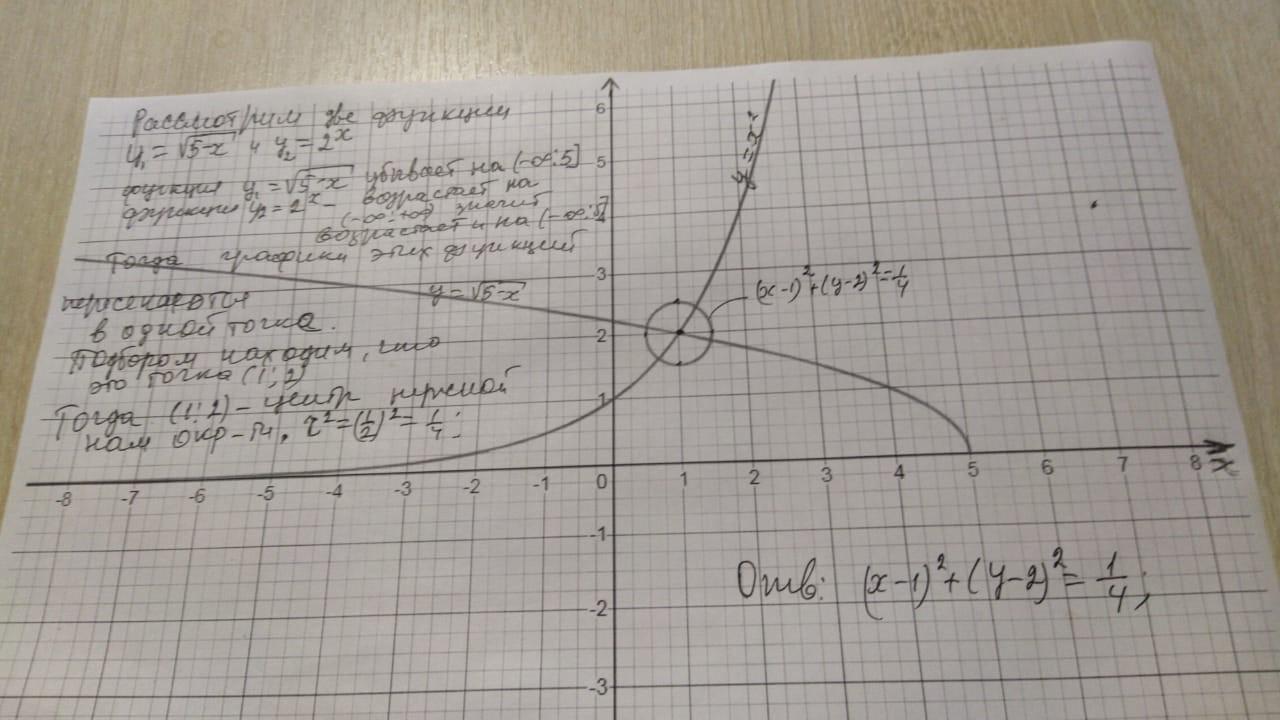 Рассмотрим две функции
y₁ = √5-x и y₂ = 2ˣ
функция y₁ = √5-x убывает на (-∞;5]
функция y₂ = 2ˣ - возрастает на
(-∞;+∞) значит
возрастает и на (-∞;5]
Тогда графики этих функций
пересекаются
в одной точка.
Подбором находим, что
это точка (1;2)
Тогда (1;2) - центр нужной
нам окр-ти. r² = (1/2)² = 1/4;
y = √5-x
y = 2ˣ
(x-1)² + (y-2)² = 1/4
6
5
4
3
2
1
-8 -7 -6 -5 -4 -3 -2 -1 0 1 2 3 4 5 6 7 8 x
-1
-2
-3
Отв: (x-1)² + (y-2)² = 1/4;